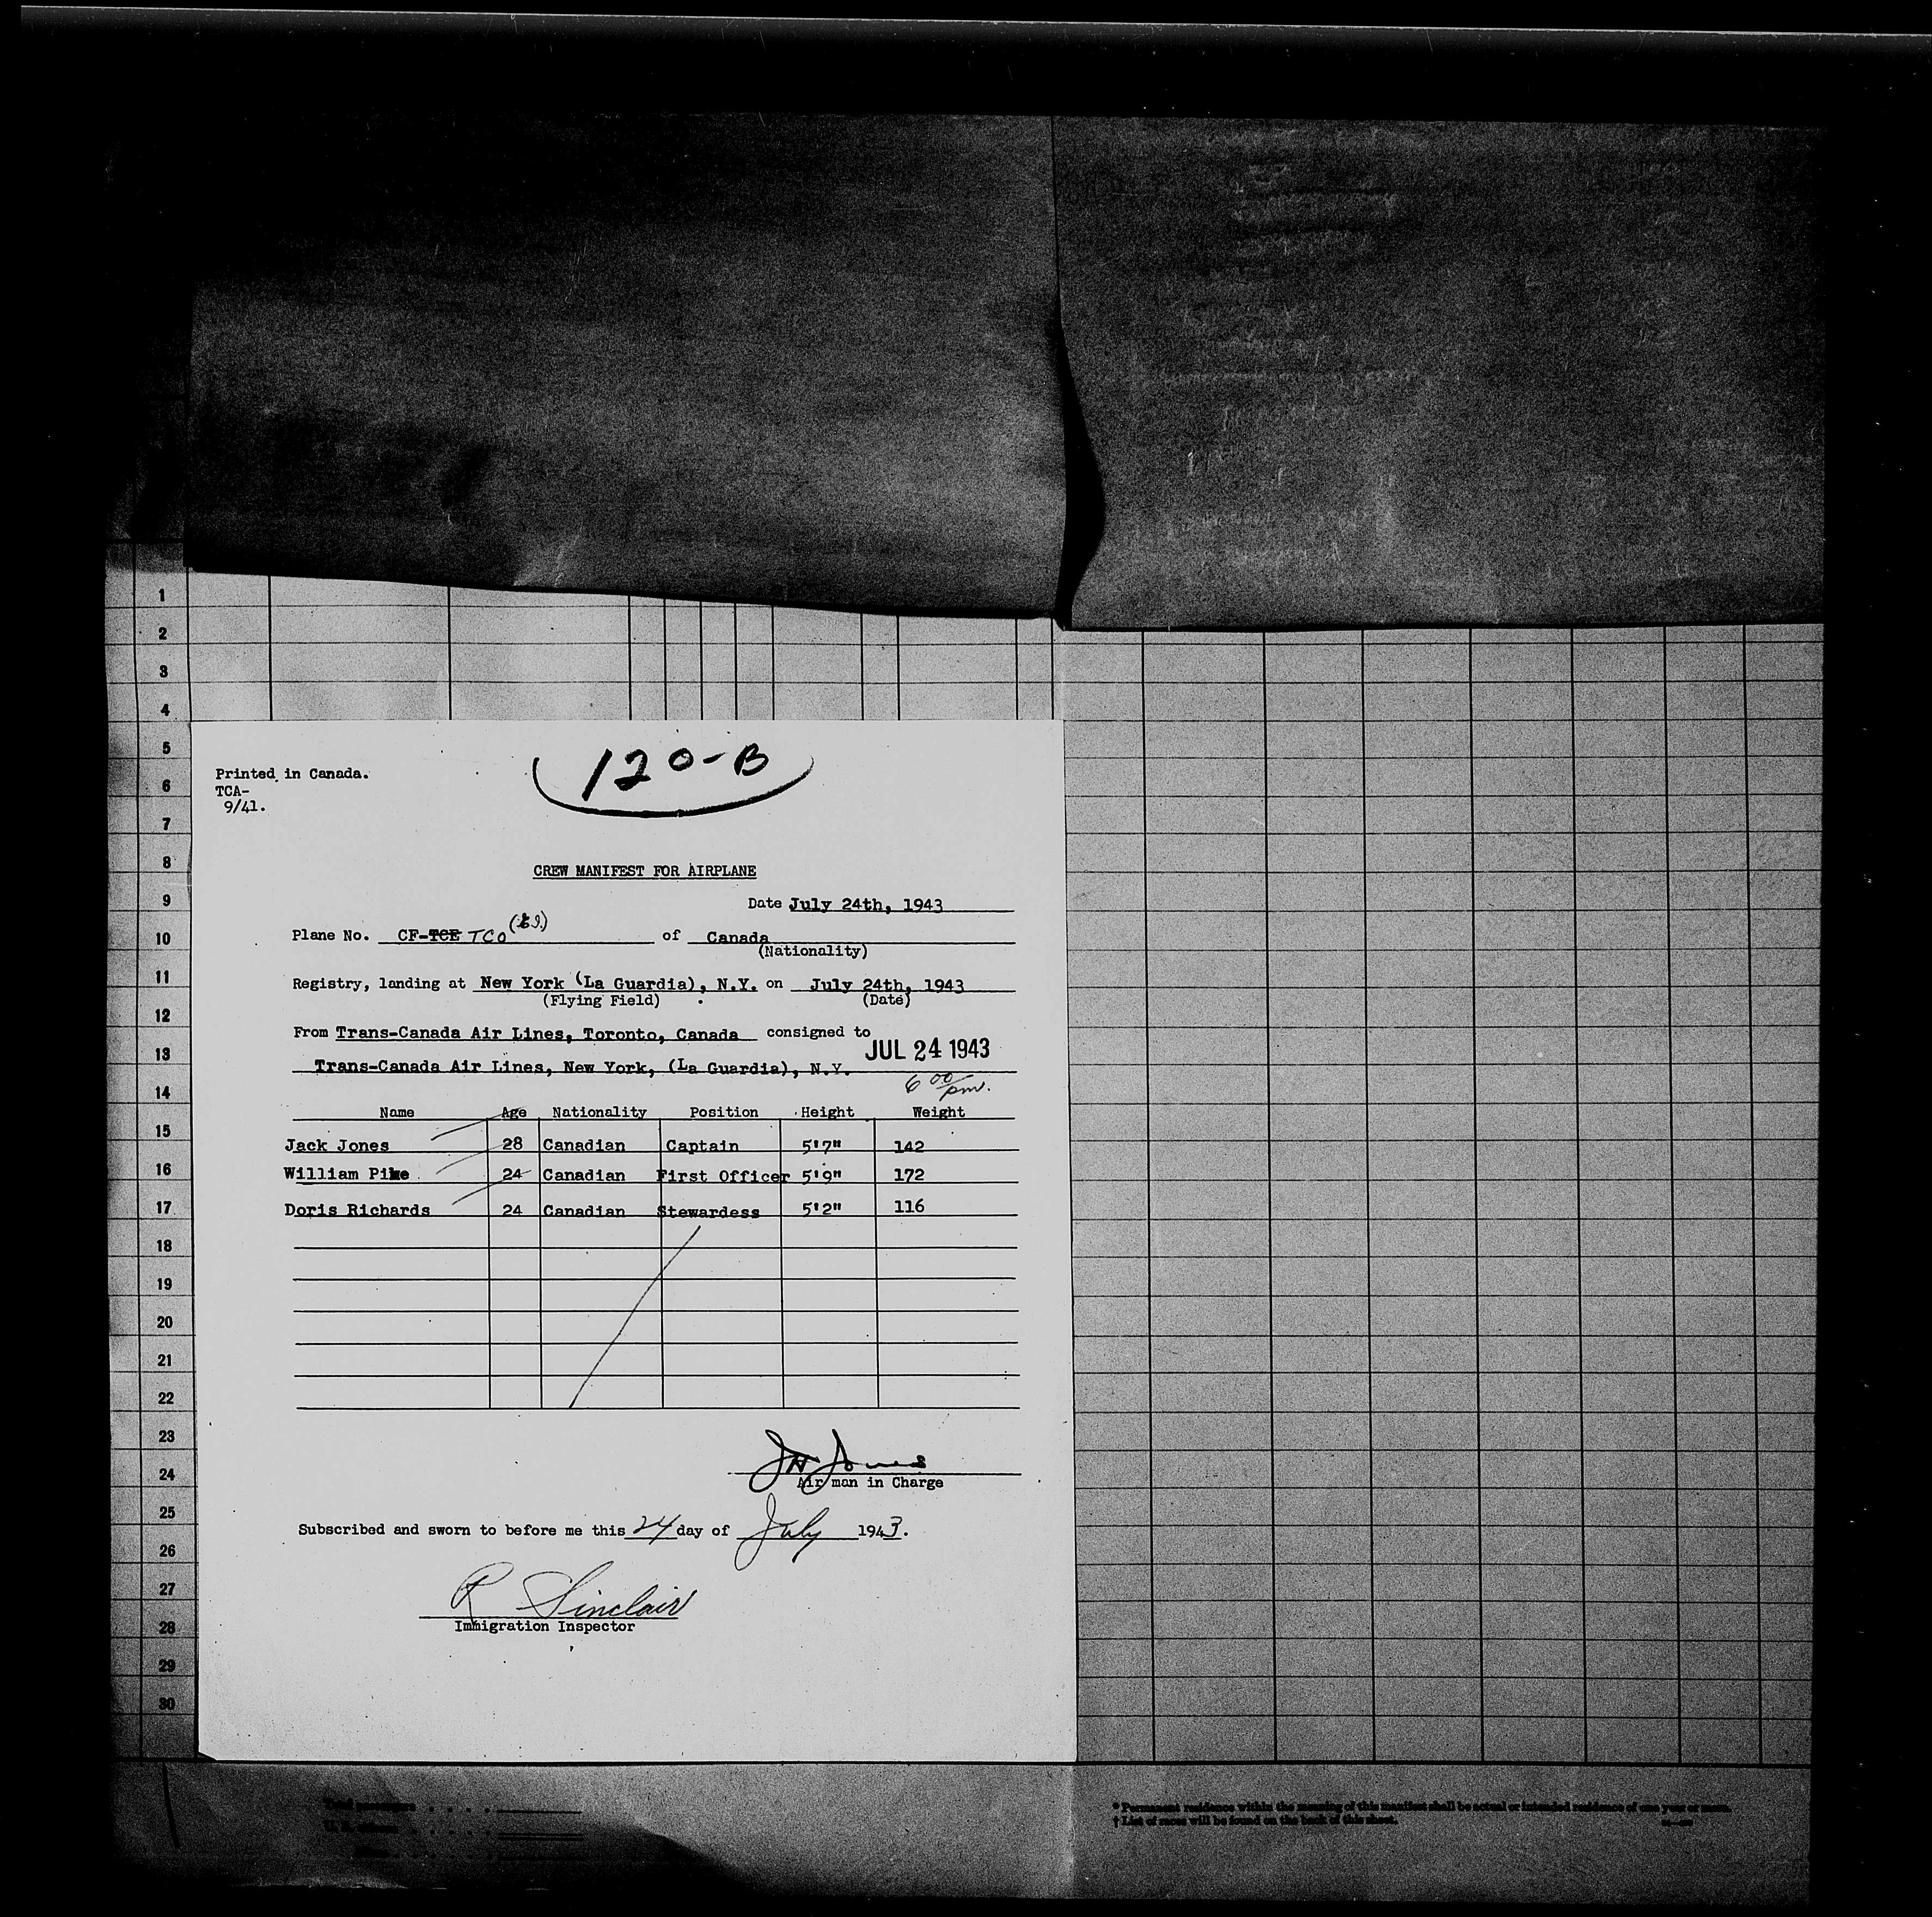 1
2
3
4
5
6
7
8
9
10
11
12
13
14
15
16
17
18
19
20
21
22
23
24
25
26
27
28
29
30
120-B
Printed in Canada.
TCA-
9/41.
CREW MANIFEST FOR AIRPLANE
Date July 24th, 1943
Plane No. CF-TCE TCO of Canada
(Nationality)
Registry, landing at New York (La Guardia), N.Y. on July 24th, 1943
(Flying Field) (Date)
From Trans-Canada Air Lines, Toronto, Canada consigned to
JUL 24 1943
Trans-Canada Air Lines, New York, (La Guardia), N.Y.
6 00 pm.
Name Age Nationality Position Height Weight
Jack Jones 28 Canadian Captain 5'7" 142
William Pike 24 Canadian First Officer 5'9" 172
Doris Richards 24 Canadian Stewardess 5'2" 116
JH Jones
Air man in Charge
Subscribed and sworn to before me this 24 day of July 1943.
R Sinclair
Immigration Inspector
Total passengers
* Permanent residence within the meaning of this manifest shall be actual or intended residence of one year or more.
† List of races will be found on the back of this sheet.